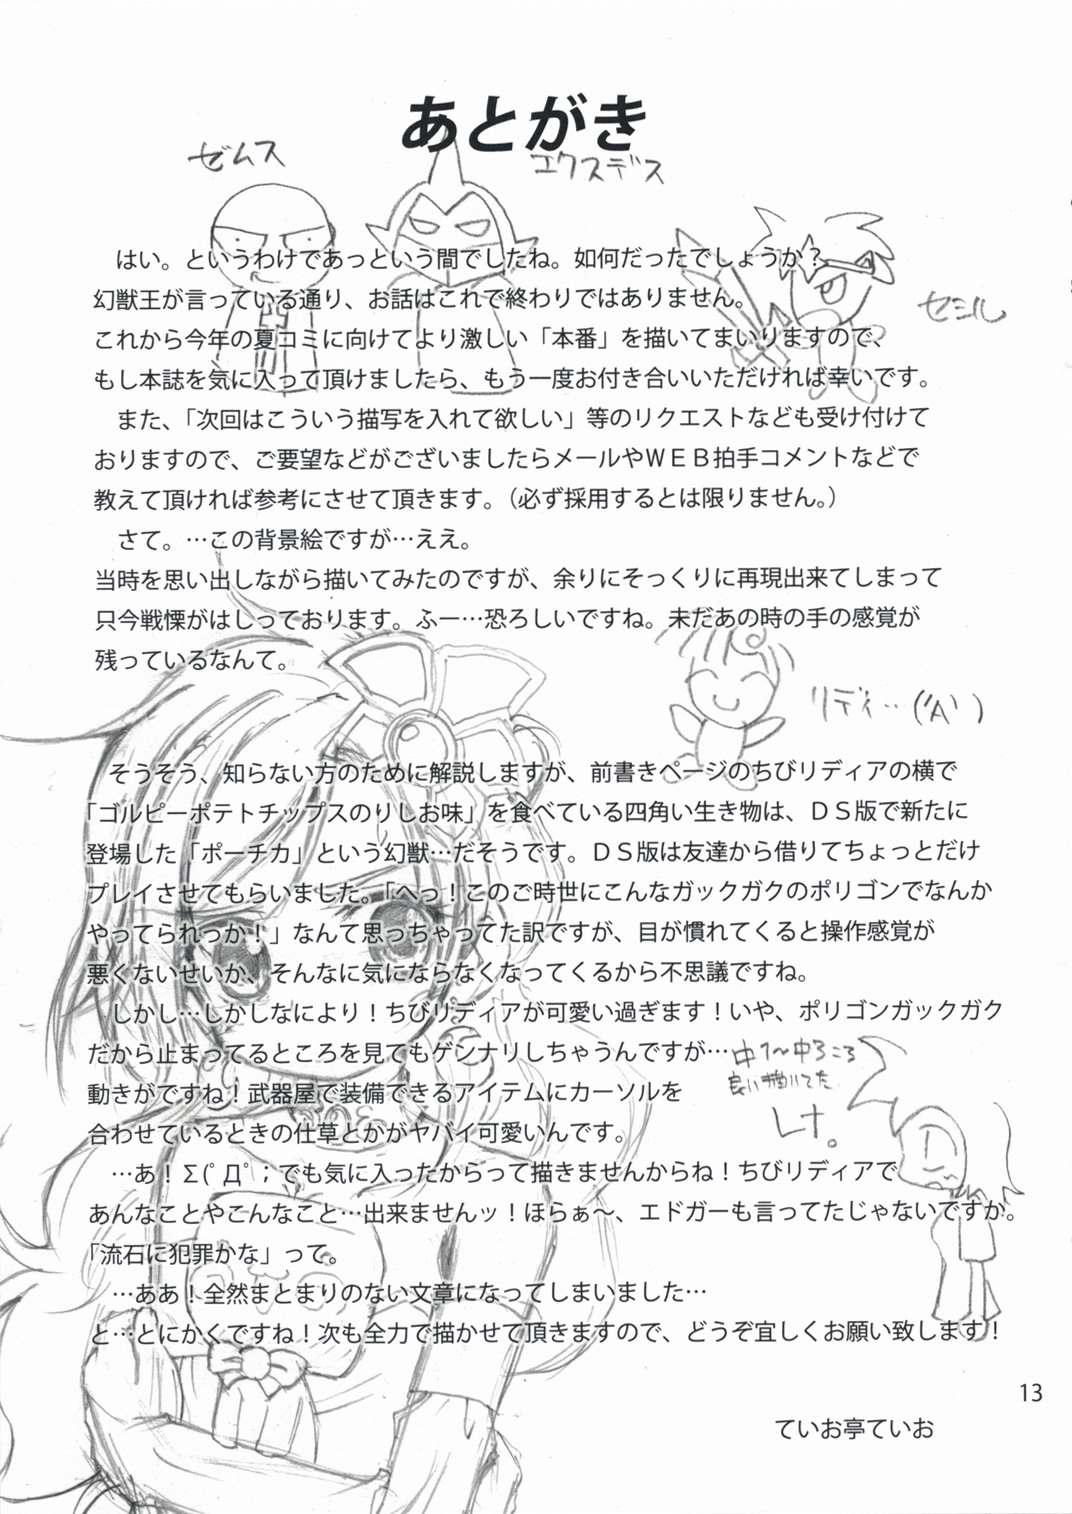 あとがき
ゼムス
エクスデス
はい。というわけであっという間でしたね。如何だったでしょうか?
幻獣王が言っている通り、お話はこれで終わりではありません。
セシル
これから今年の夏コミに向けてより激しい「本番」を描いてまいりますので、
もし本誌を気に入って頂けましたら、もう一度お付き合いいただければ幸いです。
また、「次回はこういう描写を入れて欲しい」等のリクエストなども受け付けて
おりますので、ご要望などがございましたらメールやWEB拍手コメントなどで
教えて頂ければ参考にさせて頂きます。(必ず採用するとは限りません。)
さて。…この背景絵ですが…ええ。
当時を思い出しながら描いてみたのですが、余りにそっくりに再現出来てしまって
只今戦慄がはしっております。ふー…恐ろしいですね。未だあの時の手の感覚が
残っているなんて。
リディ…('A`)
そうそう、知らない方のために解説しますが、前書きページのちびリディアの横で
「ゴルピーポテトチップスのりしお味」を食べている四角い生き物は、DS版で新たに
登場した「ポーチカ」という幻獣…だそうです。DS版は友達から借りてちょっとだけ
プレイさせてもらいました。「へっ!このご時世にこんなガックガクのポリゴンでなんか
やってられっか!」なんて思っちゃってた訳ですが、目が慣れてくると操作感覚が
悪くないせいか、そんなに気にならなくなってくるから不思議ですね。
しかし…しかしなにより!ちびリディアが可愛い過ぎます!いや、ポリゴンガックガク
だから止まってるところを見てもゲンナリしちゃうんですが…
中1〜中3ころ
良く描いてた
レナ。
動きがですね!武器屋で装備できるアイテムにカーソルを
合わせているときの仕草とかがヤバイ可愛いんです。
…あ!Σ(ﾟДﾟ;でも気に入ったからって描きませんからね!ちびリディアで
あんなことやこんなこと…出来ませんッ!ほらぁ〜、エドガーも言ってたじゃないですか。
「流石に犯罪かな」って。
…ああ!全然まとまりのない文章になってしまいました…
と…とにかくですね!次も全力で描かせて頂きますので、どうぞ宜しくお願い致します!
13
ていお亭ていお